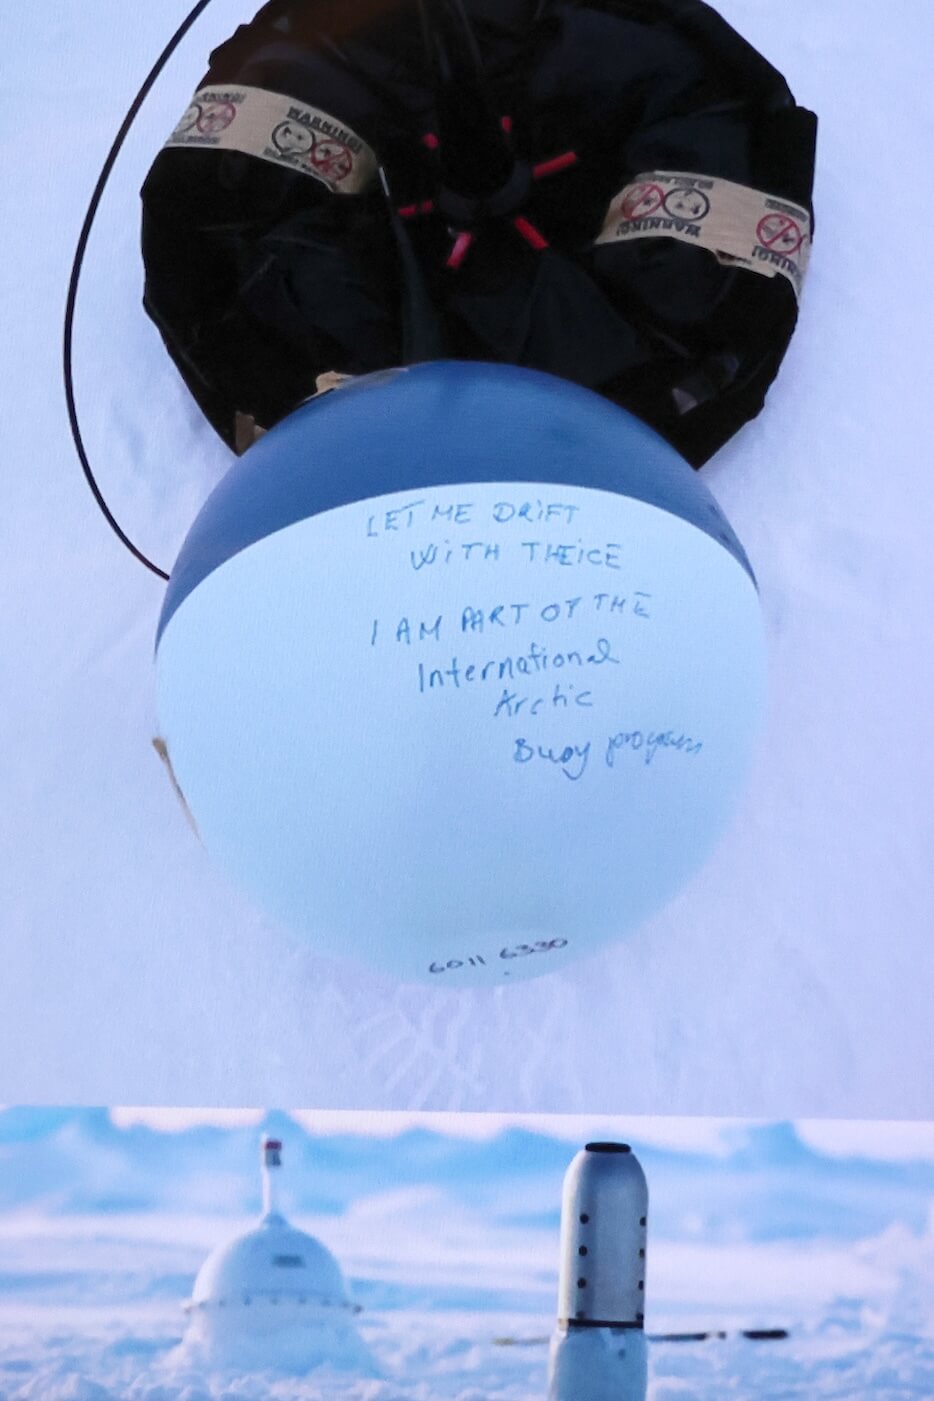 WARNING!
WARNING!
WARNING!
WARNING!
LET ME DRiFT
WiTH THEiCE
I AM PART OF THE
International
Arctic
Buoy program
6011 6330